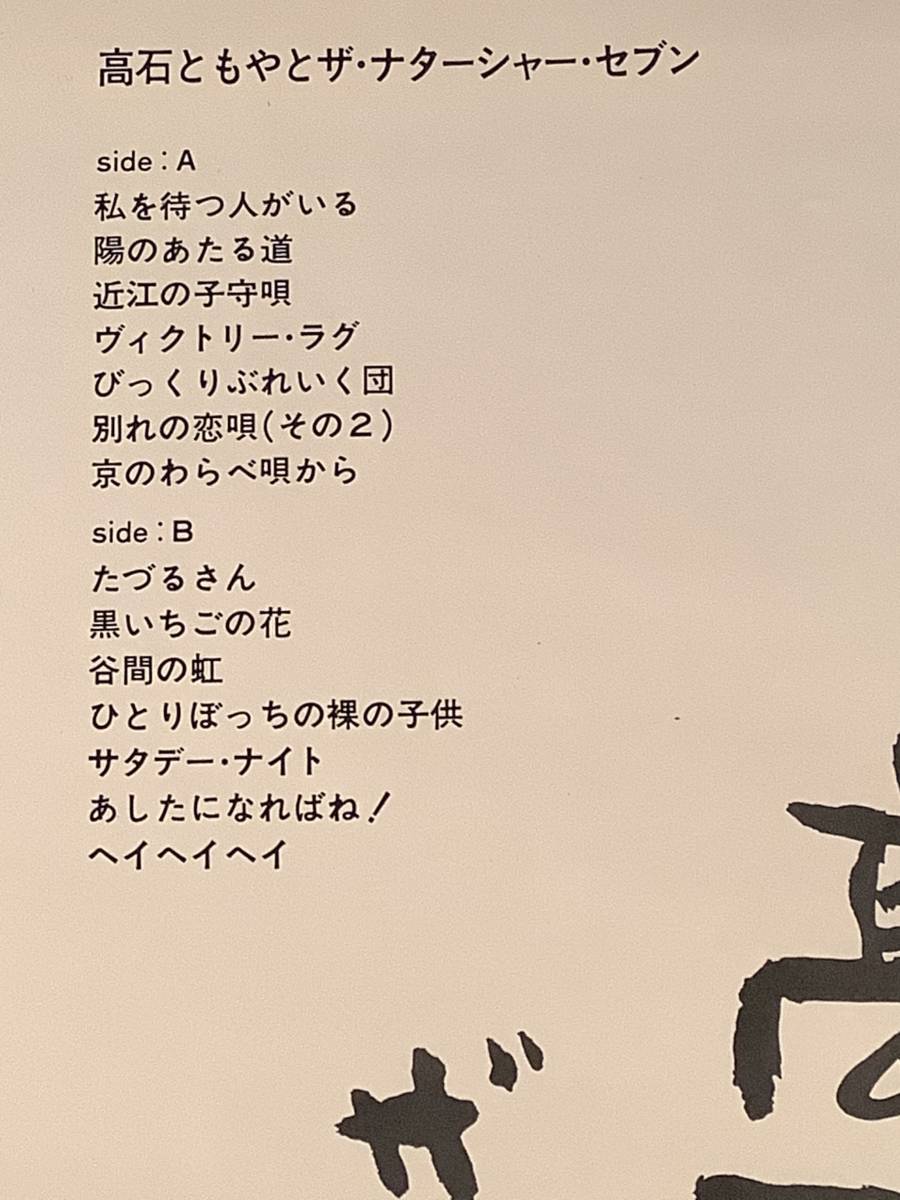 高石ともやとザ・ナターシャー・セブン
side：A
私を待つ人がいる
陽のあたる道
近江の子守唄
ヴィクトリー・ラグ
びっくりぶれいく団
別れの恋唄(その2)
京のわらべ唄から
side：B
たづるさん
黒いちごの花
谷間の虹
ひとりぼっちの裸の子供
サタデー・ナイト
あしたになればね！
ヘイヘイヘイ
高
ザ